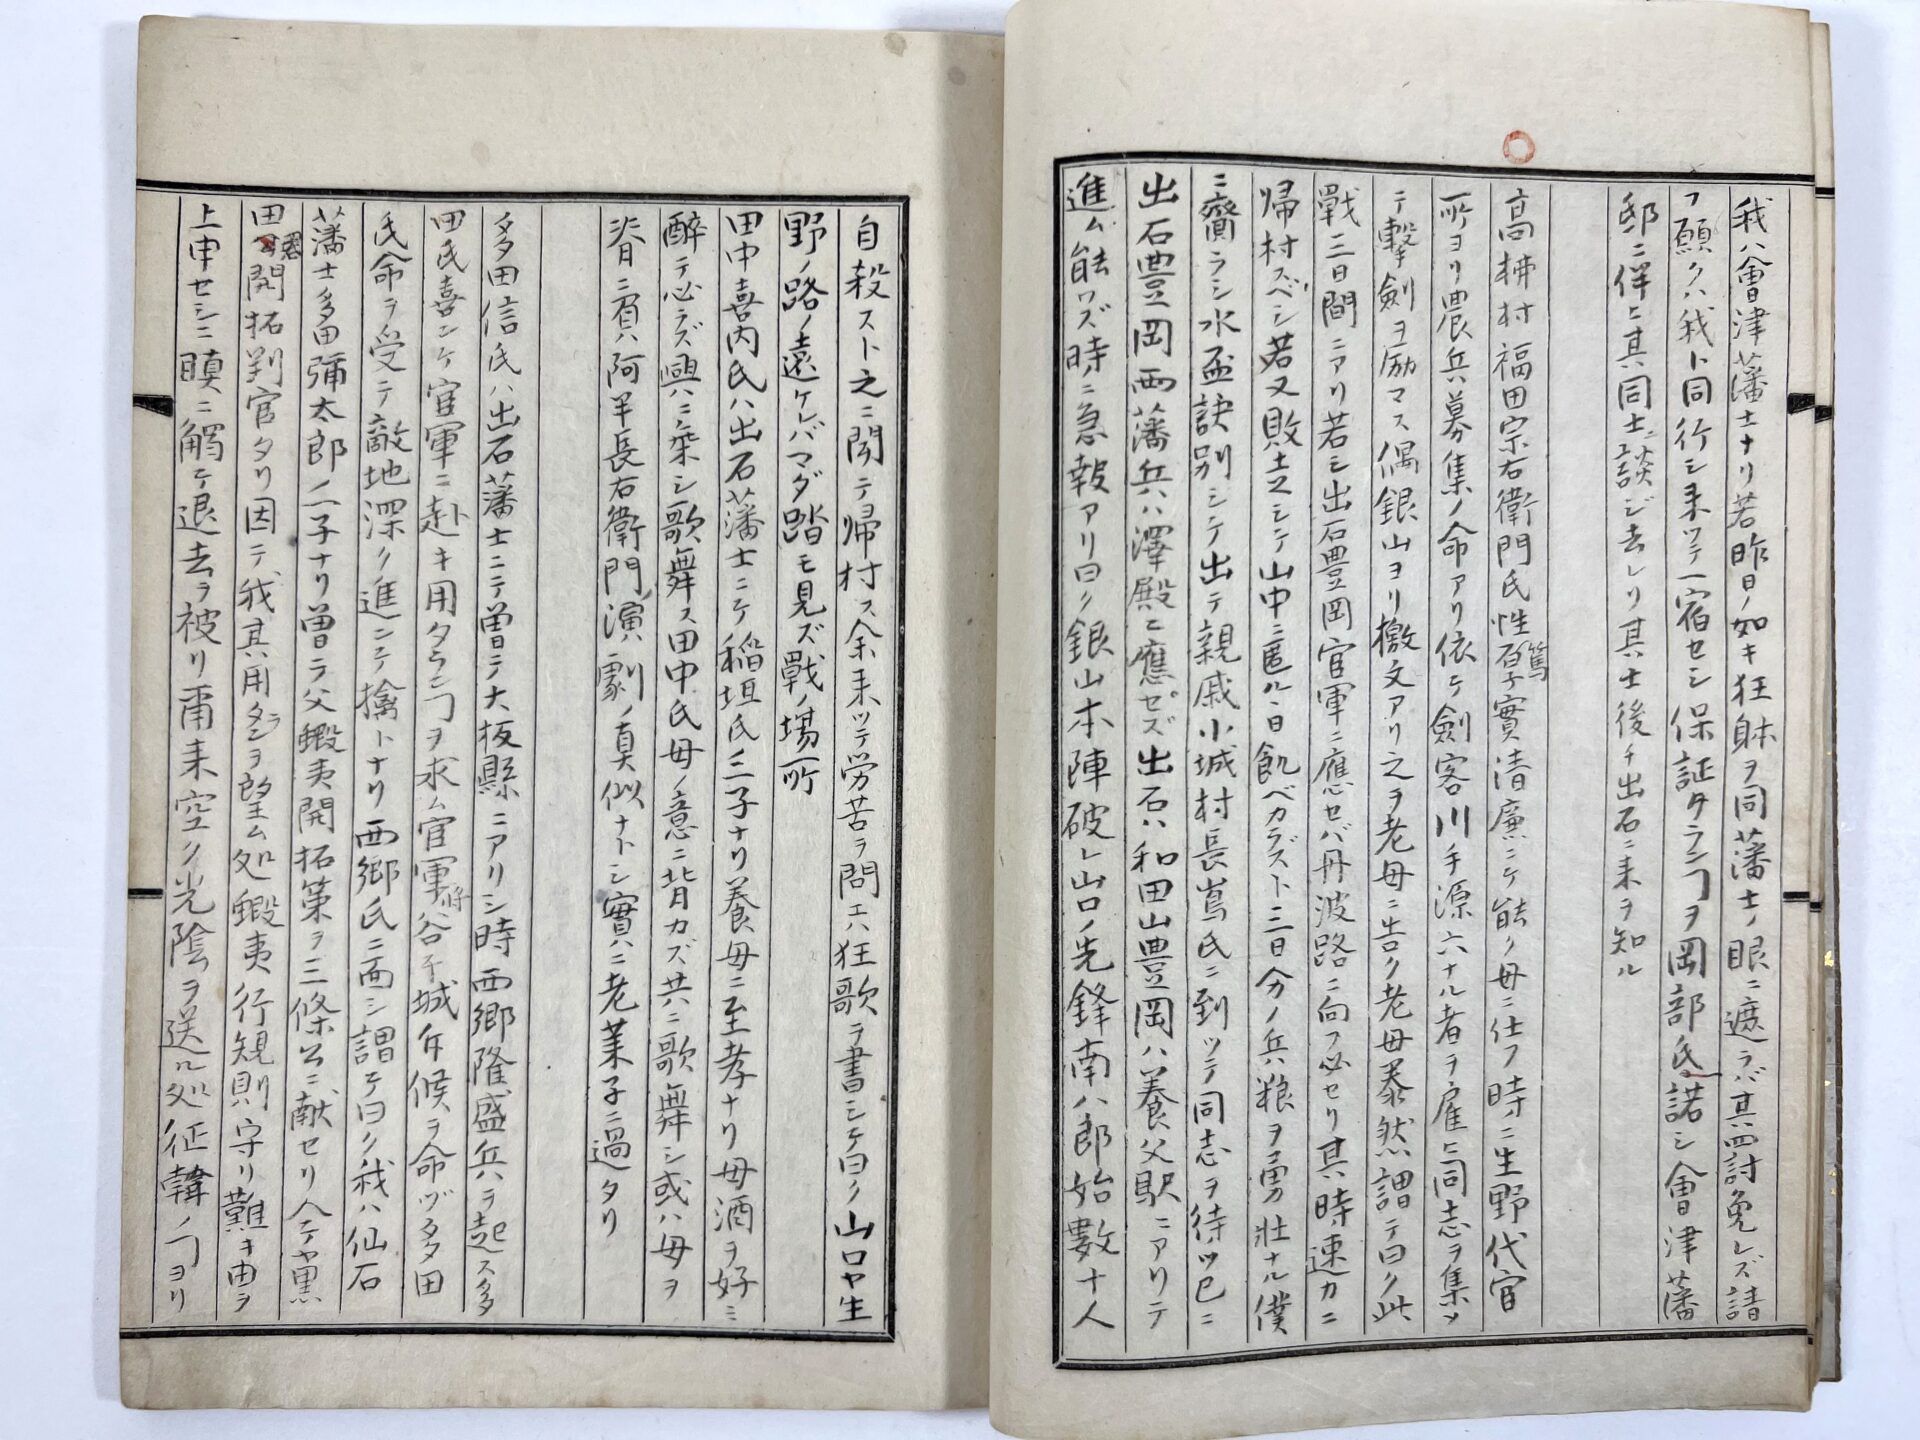 我ハ會津藩士ナリ若昨日ノ如キ狂躰ヲ同藩士ノ眼ニ遮ラバ其四討免レズ請
フ願クハ我ト同行シ来ツテ一宿セシ保証タランヿヲ岡部氏諾シ會津藩
邸ニ伴ヒ其同士ニ談ジ去レリ其士後チ出石ニ来ヲ知ル
高柿村福田宗右衛門氏性篤實清廉ニケ能ク母ニ仕フ時ニ生野代官
所ヨリ農兵募集ノ命アリ依ヶ劍客川手源六ナル者ヲ雇ヒ同志ヲ集メ
テ撃劍ヲ励マス偶銀山ヨリ檄文アリ之ヲ老母ニ告ク老母泰然謂テ曰ク此
戰三日間ニアリ若シ出石豊岡官軍ニ應セバ丹波路ニ向フ必セリ其時速カニ
帰村スベシ若又敗走シケ山中ニ匿ル日飢ベカラズト三日分ノ兵粮ヲ勇壮ナル僕
ニ齎ラシ水盃訣別シケ出テ親戚小城村長嶌氏ニ到ツテ同志ヲ待ツ已ニ
出石豊岡両藩兵ハ澤殿ニ應セズ出石ハ和田山豊岡ハ養父駅ニアリテ
進ム能ワズ時ニ急報アリ曰ク銀山本陣破レ山口ノ先鋒南八郎始數十人
自殺スト之ニ聞テ帰村ス余来ツテ労苦ヲ問エハ狂歌ヲ書シケ曰ク山口ヤ生
野ノ路ノ遠ケレバマダ踏モ見ズ戰ノ場所
田中喜内氏ハ出石藩士ニケ稲垣氏三子ナリ養母ニ至孝ナリ母酒ヲ好ミ
醉テ必ラズ興ニ乗シ歌舞ス田中氏母ノ意ニ背カズ共ニ歌舞シ或ハ母ヲ
脊ニ負ハ阿半長右衛門演劇ノ真似ナトシ實ニ老莱子ニ過タリ
多田信氏ハ出石藩士ニテ曽テ大板縣ニアリシ時西郷隆盛兵ヲ起ス多
田氏喜ンケ官軍ニ赴キ用タランヿヲ求ム官軍将谷干城斥候ヲ命ヅ多田
氏命ヲ受テ敵地深ク進ンテ擒トナリ西郷氏ニ面シ謂テ曰ク我ハ仙石
藩士多田彌太郎ノ二子ナリ曽テ父蝦夷開拓策ヲ三條公ニ献セリ今ヤ黒
田開拓判官タリ因テ我其用タラシヲ望ム処蝦夷行規則守リ難キ由ヲ
上申セシニ瞋ニ觸ケ退去ヲ被リ爾来空ク光陰ヲ送ル処征韓ノヿヨリ